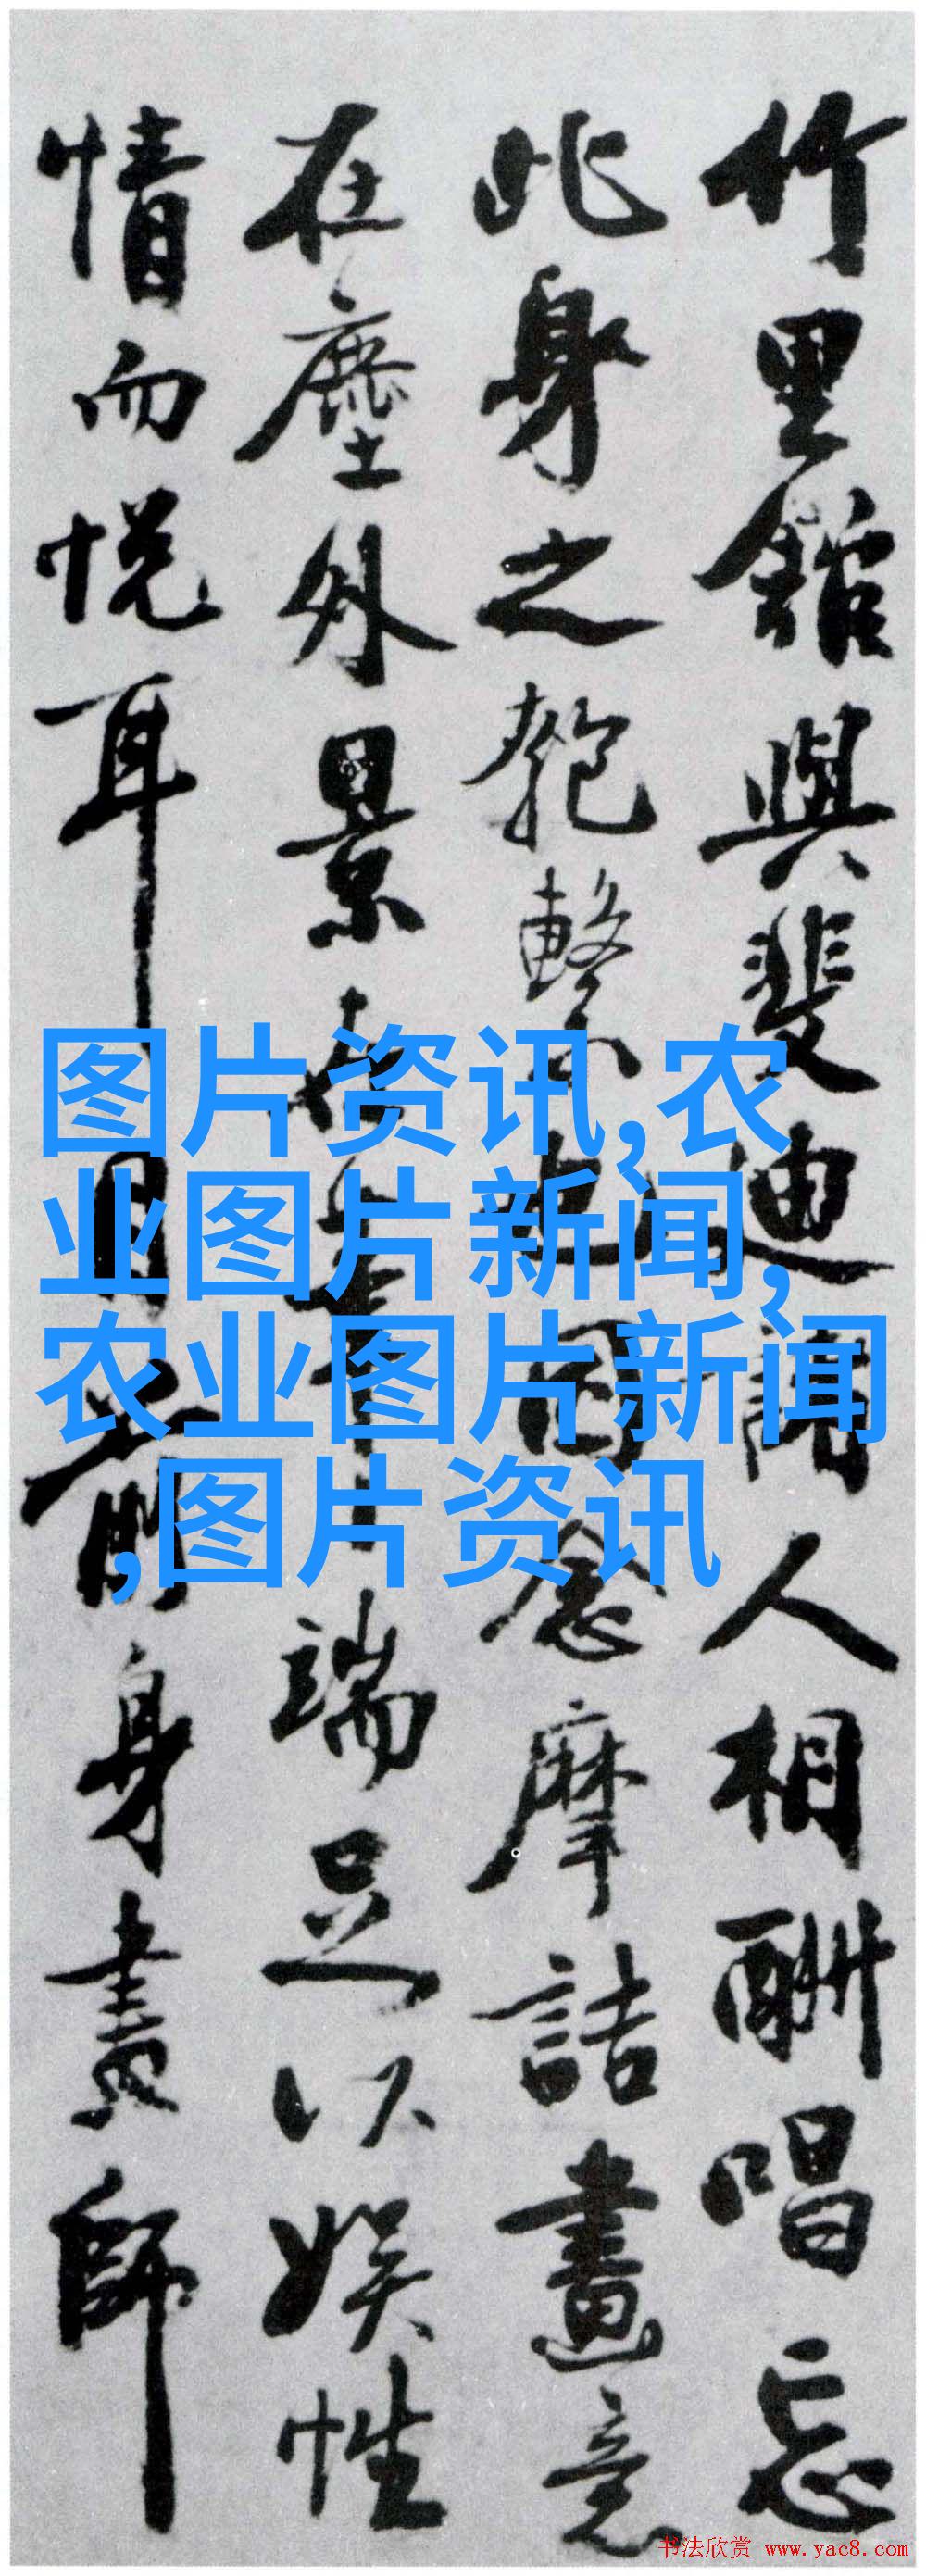 竹里館與斐迪人相酬唱忘
此身之匏繫也因念摩詰畫意
在塵外景在筆端足以娛性
情而悅耳目前身畫師
图片资讯,农
业图片新闻,
农业图片新闻
,图片资讯
书法欣赏 www.yac8.com